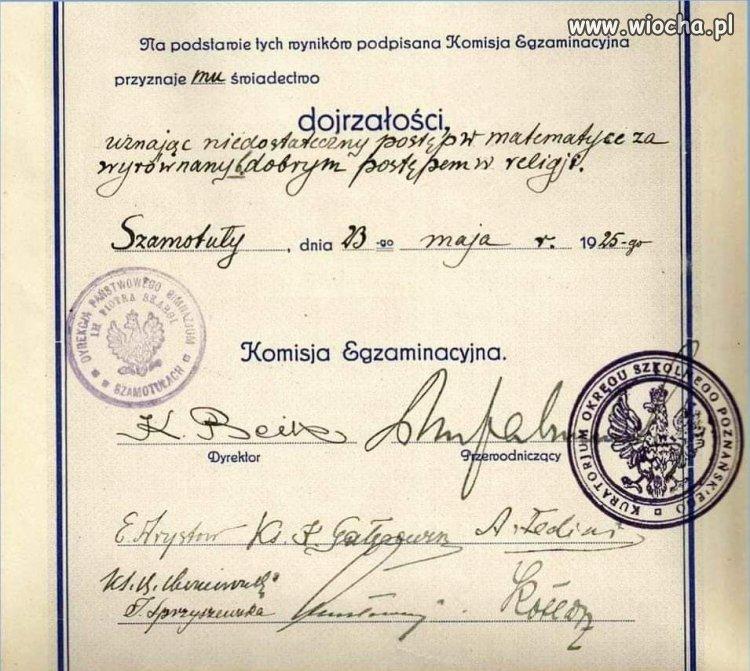 www.wiocha.pl
Na podstawie tych wyników podpisana Komisja Egzaminacyjna
przyznaje mu świadectwo
dojrzałości,
uznając niedostateczny postęp w matematyce za
wyrównany dobrym postępem w religji.
Szamotuły, dnia 23-go maja r. 1925-go
DYREKCJA PAŃSTWOWEGO GIMNAZJUM
IM PIOTRA SKARGI
SZAMOTUŁACH
Komisja Egzaminacyjna.
KURATORJUM OKRĘGU SZKOLNEGO POZNAŃSKIEGO
K. Beik
Dyrektor
Przewodniczący
Ks.